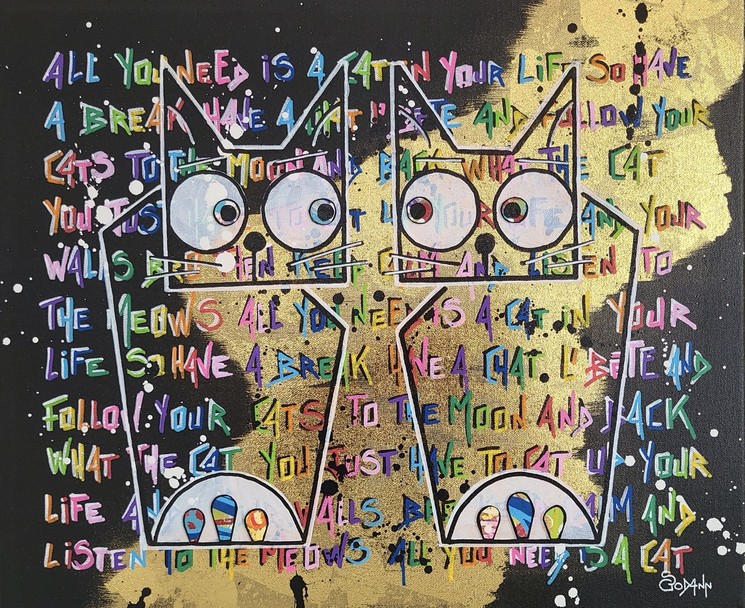 ALL YOU NEED IS A CAT IN YOUR LIFE SO HAVE
A BREAK HAVE A CHAT L'BETE AND FOLLOW YOUR
CATS TO THE MOON AND BACK WHAT THE CAT
YOU JUST TO YOUR LIFE AND YOUR
WALLS KEEP CALM AND LISTEN TO
THE MEOWS ALL YOU NEED IS A CAT IN YOUR
LIFE SO HAVE A BREAK HAVE A CHAT L'BETE AND
FOLLOW YOUR CATS TO THE MOON AND BACK
WHAT THE CAT YOU JUST HAVE TO CAT UP YOUR
LIFE AND WALLS AND
LISTEN TO THE MEOWS ALL YOU NEED IS A CAT
GODANN